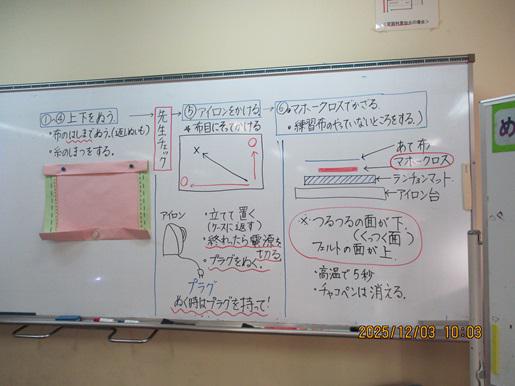 ①~④上下をぬう。
・布のはしまでぬう。(返しぬいも)
・糸のしまつをする。
先生チェック
⑤アイロンをかける。
*布目にそってかける
×
アイロン
・立てて置く
(ケースに返す)
・終れたら電源を
切る
・プラグをぬく。
プラグ
ぬく時はプラグを持って!
⑥マホークロスでかざる。
・練習布のやっていないところをする。)
あて布
マホークロス
ランチョンマット
アイロン台
※つるつるの面が下。
(くっつく面)
フェルトの面が上。
・高温で5秒
・チャコペンは消える。
め
2025/12/03 10:03